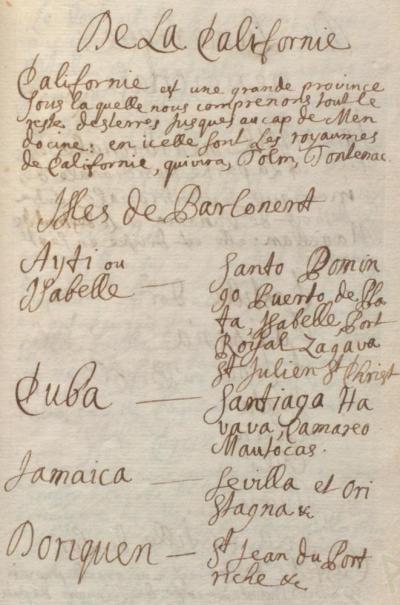 De La Californie
Californie est une grande province
sous laquelle nous comprenons tout le
reste des terres jusques au cap de Men
docine: en icelle sont les royaumes
de Californie, quivira, Tolm, Tontenac.
Isles de Barlonent
Ayti ou
Isabelle —
Santo Domin
go Puerto, de Pla
ta, Isabelle, Port
Royal Zagava
St Julien St Christ
Cuba —
Santiaga Ha
vava, Camareo
Mautocas.
Jamaica —
Sevilla et Ori
stagna &c
Boriquen —
St Jean du Port
riche &c